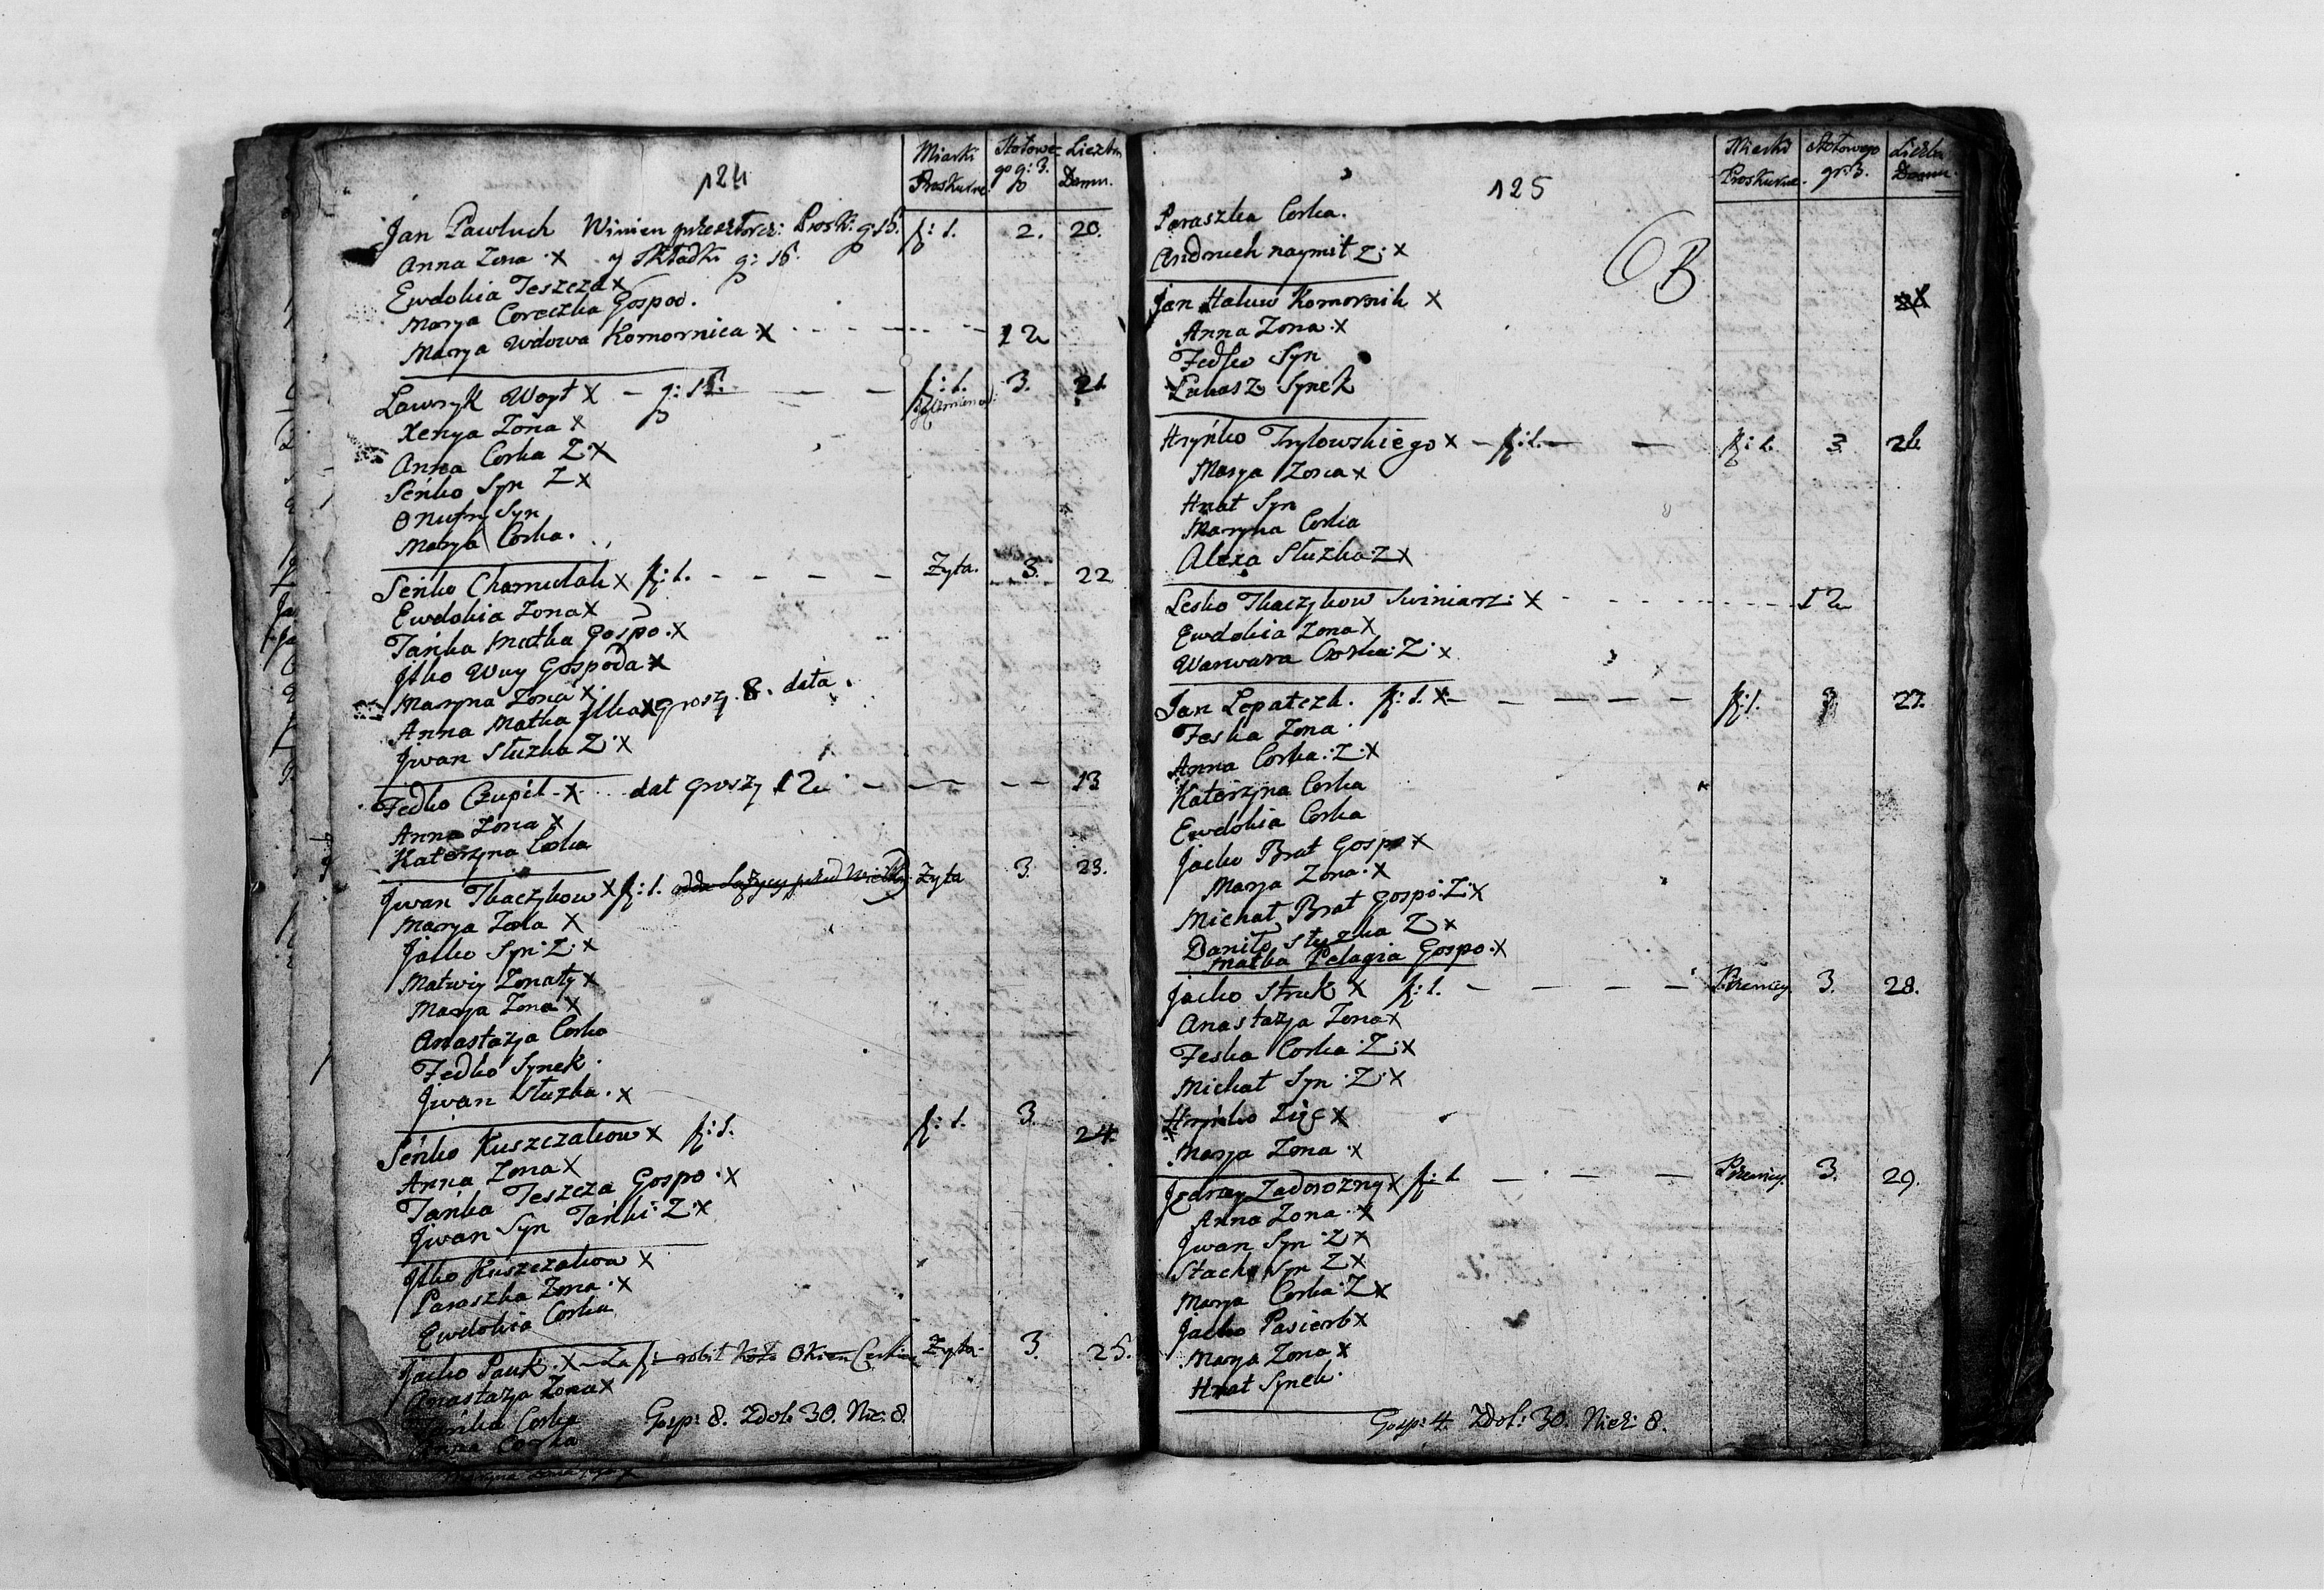 124
Miarki Stołowe- Liczba
Proskurne. go g: 3. Domu.
Jan Pawluch Winien przeszłorcz: Prosk: g: 15. f: 1. 2. 20.
Anna Zona X y Składki g: 15.
Ewdokia Teszcza X
Marya Coreczka Gospod.
Marya Wdowa Komornica X 12
Lawryk Woyt X – g: 15. – – f: 1. 3. 21
Xenya Zona X
Anna Corka Z: X
Seńko Syn Z X
Onufry Syn
Marya Corka.
Seńko Chamulak X f: 1. – – – – Zyta. 3. 22
Ewdokia Zona X
Tańka Matka Gospo. X
Jlko Wuy Gospoda X
Maryna Zona X
Anna Matka Jlka X groszy 8. data.
Jwan Słuzka Z: X
Fedko Czupil X dat groszy 12 – – – – 13
Anna Zona X
Katerzyna Corka
Jwan Tkaczykow X f: 1. Zyta 3. 23.
Marya Zona X
Jacko Syn Z: X
Matwiy Zonaty X
Marya Zona X
Anastazya Corka
Fedko Synek.
Jwan Słuzka. X
Seńko Kuszczakow X f: 1. f: 1. 3. 24.
Anna Zona X
Tańka Teszcza Gospo. X
Jwan Syn Tańki Z: X
Jlko Kuszczakow X
Paraszka Zona X
Ewdokia Corka
Jacko Pauk. X – Za f: robit Koło Okien Cerkiew Zyta 3. 25.
Anastazya Zona X
Tańka Corka
Anna Corka
Gosp: 8. Zdol: 30. Nie: 8.
125
Miarki Stołowego Liczba
Proskurne. gr: 3. Domu.
Paraszka Corka.
Andruch naymit Z: X
Jan Haluw Komornik X
Anna Zona X
Fedko Syn
Łukasz Synek
Hryńko Trylowskiego X – f: 1. – – f: 1. 3. 26.
Marya Zona X
Hnat Syn
Maryna Corka
Alexa Słuzka Z X
Lesko Tkaczykow Swiniarz: X 12
Ewdokia Zona X
Warwara Corka Z: X
Jan Lopatczk. f: 1. X – – – – – f: 1. 3 27.
Feska Zona
Anna Corka: Z: X
Katerzyna Corka
Ewdokia Corka
Jacko Brat Gosp: X
Marya Zona: X
Michał Brat gospo: Z: X
Daniło Słuzka Z X
Matka Pelagia Gospo. X
Jacko Struk X f: 1. – – – – Pszenicy. 3. 28.
Anastazya Zona X
Feska Corka Z: X
Michał Syn Z: X
Hryńko Zięć X
Marya Zona X
Jędrzey Zadorozny X f: 1 – – – – Pszenicy. 3. 29.
Anna Zona X
Jwan Syn Z X
Stach Syn Z X
Marya Corka Z X
Jacko Pasierb X
Marya Zona X
Hnat Synek.
Gosp: 4. Zdol: 30. Niez: 8.